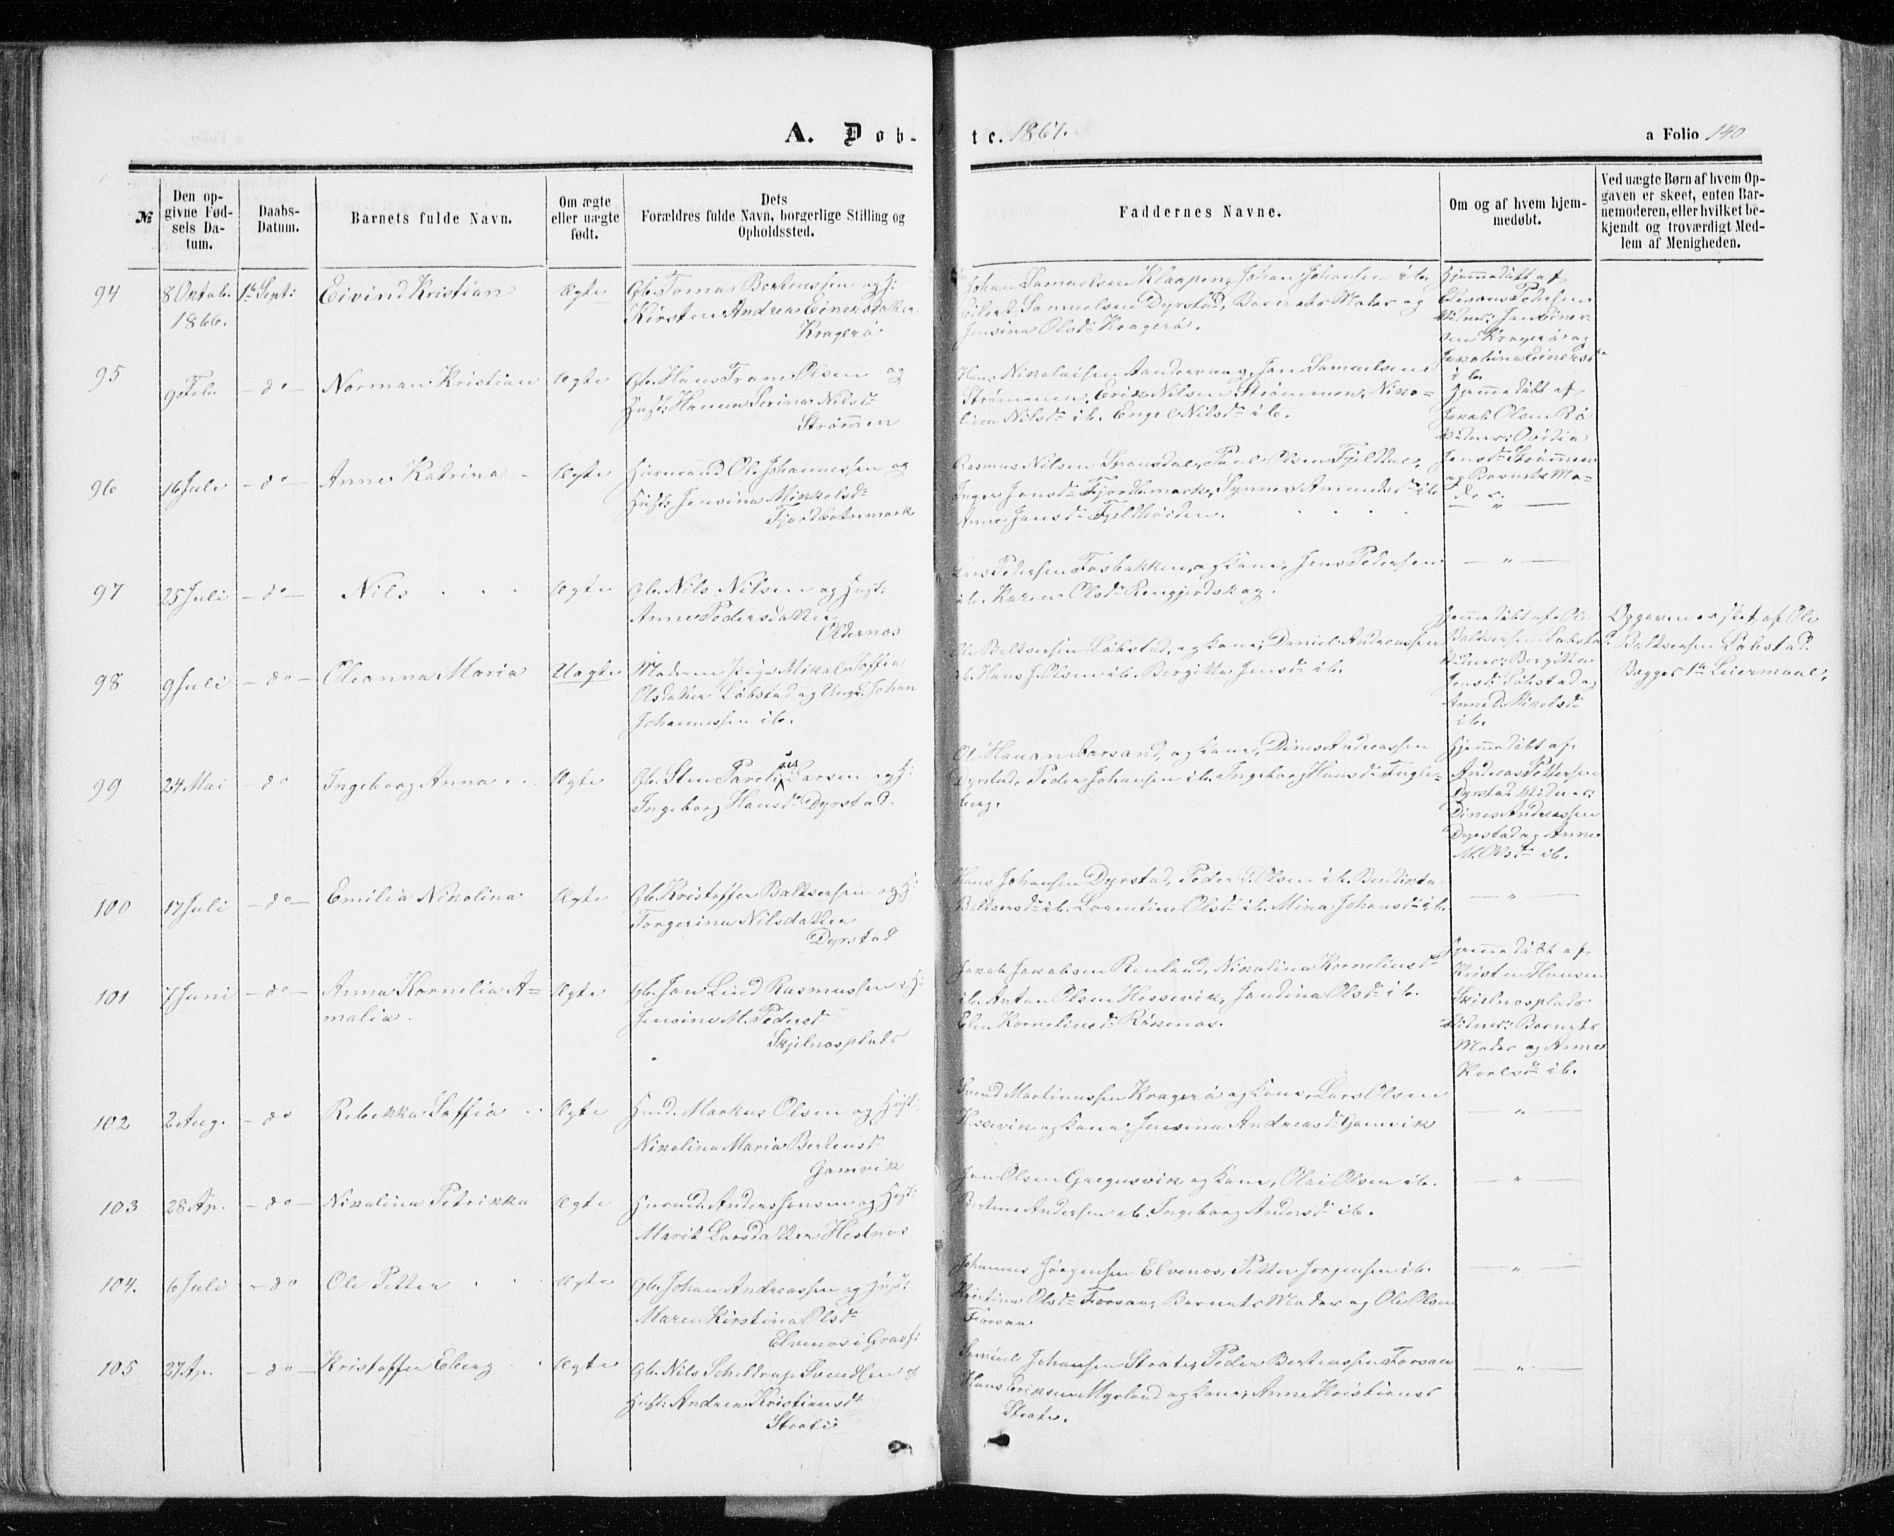 A. Døb-
te. 1867.
a Folio 140
№
Den opgivne Fødsels Datum.
Daabs-Datum.
Barnets fulde Navn.
Om ægte eller uægte født.
Dets Forældres fulde Navn, borgerlige Stilling og Opholdssted.
Faddernes Navne.
Om og af hvem hjemmedøbt.
Ved uægte Børn af hvem Opgaven er skeet, enten Barnemoderen, eller hvilket bekjendt og troværdigt Medlem af Menigheden.
94
8 Octob. 1866.
1ste Sept:
Eivind Kristian
Ægte
Gbr. Tomas Berteussen og H:
Kirsten Andrea Einersdatter
Kragerø
Johan Samuelsen Klaapen, Johan Johansen ib.
Eilert Samuelsen Dyrstad, Barnets Moder og
Jensina Olsd. Kragerø.
Hjemmedøbt af
95
9 Feb.
do
Norman Kristian
Ægte
Gbr. Hans Franc Olsen og
Hust: Hanna Serina Nilsd.
Strømmen
Hans Nikolaisen, Jan Samuelsen
Strømmen, Erik Nilsen Strømmen, Niko-
lina Nilsd. ib. Engel Nilsd. ib.
Hjemmedøbt af
Jakob Olsen Rø
96
16 Juli
do
Anne Katrina
Ægte
Huusmand Ole Johannessen og
Hust: Jensina Mikkelsd.
Fjordbotnmark
Rasmus Nilsen Spansdal, Paul Olsen Fjelddal,
Inger Jensd. Fjordbmark, Synnev Amundsd. ib.
Anne Jensd. Fjeldhøiden.
"
97
25 Juli
do
Nils
Ægte
Gbr. Nils Nilsen og Hust.
Anne Pedersdatter
Oldernes
Lars Pedersen Fosbakken og Kone, Jens Pedersen
ib. Karen Olsd. Rengjerdskog.
"
98
9 Juli
do
Oleanna Maria
Uægte
Moderen Pige Mikal Soffia
Olsdatter Løbstad og Ungk. Johan
Johannessen ib.
Ole Baltsersen Løbstad, og Kone, Daniel Andreassen
ib. Hans J. Olsen ib. Bergitte Jensd. ib.
Hjemmedøbt af Ole
Baltsersen Løbstad
Vidner: Bergitte
Jensd. Løbstad og
Anne D. Mikelsd.
ib.
Opgaven er skeet af Ole
Baltsersen Løbstad.
Begges 1ste Leiermaal.
99
24 Mai
do
Ingeborg Anna
Ægte
Gbr. Sten Parelius Larsen og H:
Ingeborg Hansd. Dyrstad.
Ol. Hanan Aarsand, og Kone, Dines Andreassen
Dyrstad, Peder Johansen ib. Ingeborg Hansd. Fugle-
berg.
Hjemmedøbt af
Andreas Pettersen
Dyrstad Vidner:
Dines Andreassen
Dyrstad og Anne
M. Olsd. ib.
100
17 Juli
do
Emilia Nikolina
Ægte
Gbr. Kristoffer Baltsersen og H:
Torgerina Nilsdatter
Dyrstad
Hans Johansen Dyrstad, Peder Olsen ib. Bendikta
Baltsersd. ib. Lorentine Olsd. ib. Mina Johansd. ib.
"
101
7 Juni
do
Anna Kornelia A-
malia.
Ægte
Gbr. Jan Lind Rasmussen & H:
Jensine M. Pedersd.
Skjelnesplads
Jakob Jakobsen Renland, Nikolina Korneliusd.
ib. Anton Olsen Hessevik, Jandina Olsd. ib.
Elen Korneliusd. Røkenes.
Hjemmedøbt af
Kristen Hansen
Skjelnesplads
Vidner: Barnets
Moder og Anne
Karlsd. ib.
102
2 Aug.
do
Rebekka Soffia
Ægte
Hmd. Markus Olsen og Hust:
Nikolina Maria Berteusd.
Gamvik
Svend Martinussen Kragerø og Kone, Lars Olsen
Hessevik og Kone, Jensina Andreasd. Gamvik
"
103
28 Ap.
do
Nikolina Petrikka
Ægte
Huusmd. Anders Jensen og Hust:
Marit Larsdatter Hestnes
Jan Olsen Gregusvik og Kone, Olai Olsen ib.
Berteus Andersen ib. Ingeborg Andersd. ib.
"
104.
6 Juli
do
Ole Petter
Ægte
Gbr. Johan Andreassen og Hust:
Maren Kirstina Olsd.
Elvenes i Gravf:
Johannes Jørgensen Elvenes, Petter Jørgensen ib.
Kristina Olsd. Forsaa, Barnets Moder og Ole Olsen
Forsaa.
"
105
27 Ap.
do
Kristoffer Eberg
Ægte
Gbr. Nils Scheldrup Svendsen &
Hust: Andrea Kristiansd.
Strate
Johansen Strate, Peder Berteussen Forsaa
Hans Eriksen Myrland og Kone, Anne Kristiansd.
Strate.
"